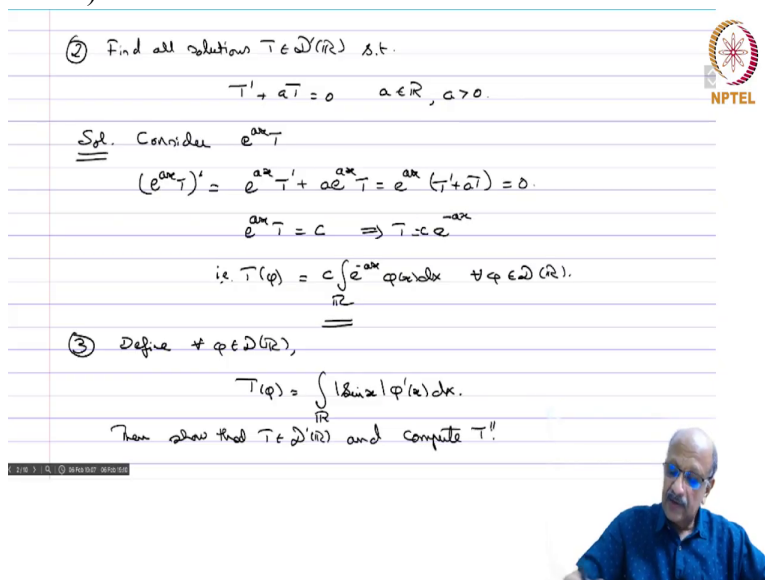 ② Find all solutions T ∈ D'(ℝ) s.t.
NPTEL
T' + aT = 0 a ∈ ℝ, a > 0.
Sol. Consider e^{ax}T
(e^{ax}T)' = e^{ax}T' + ae^{ax}T = e^{ax}(T' + aT) = 0.
e^{ax}T = c ⟹ T = ce^{-ax}
i.e. T(φ) = c∫_ℝ e^{-ax} φ(x)dx ∀φ ∈ D(ℝ).
③ Define ∀ φ ∈ D(ℝ),
T(φ) = ∫_ℝ |Sin x| φ'(x) dx.
Then show that T ∈ D'(ℝ) and compute T''.
2/10